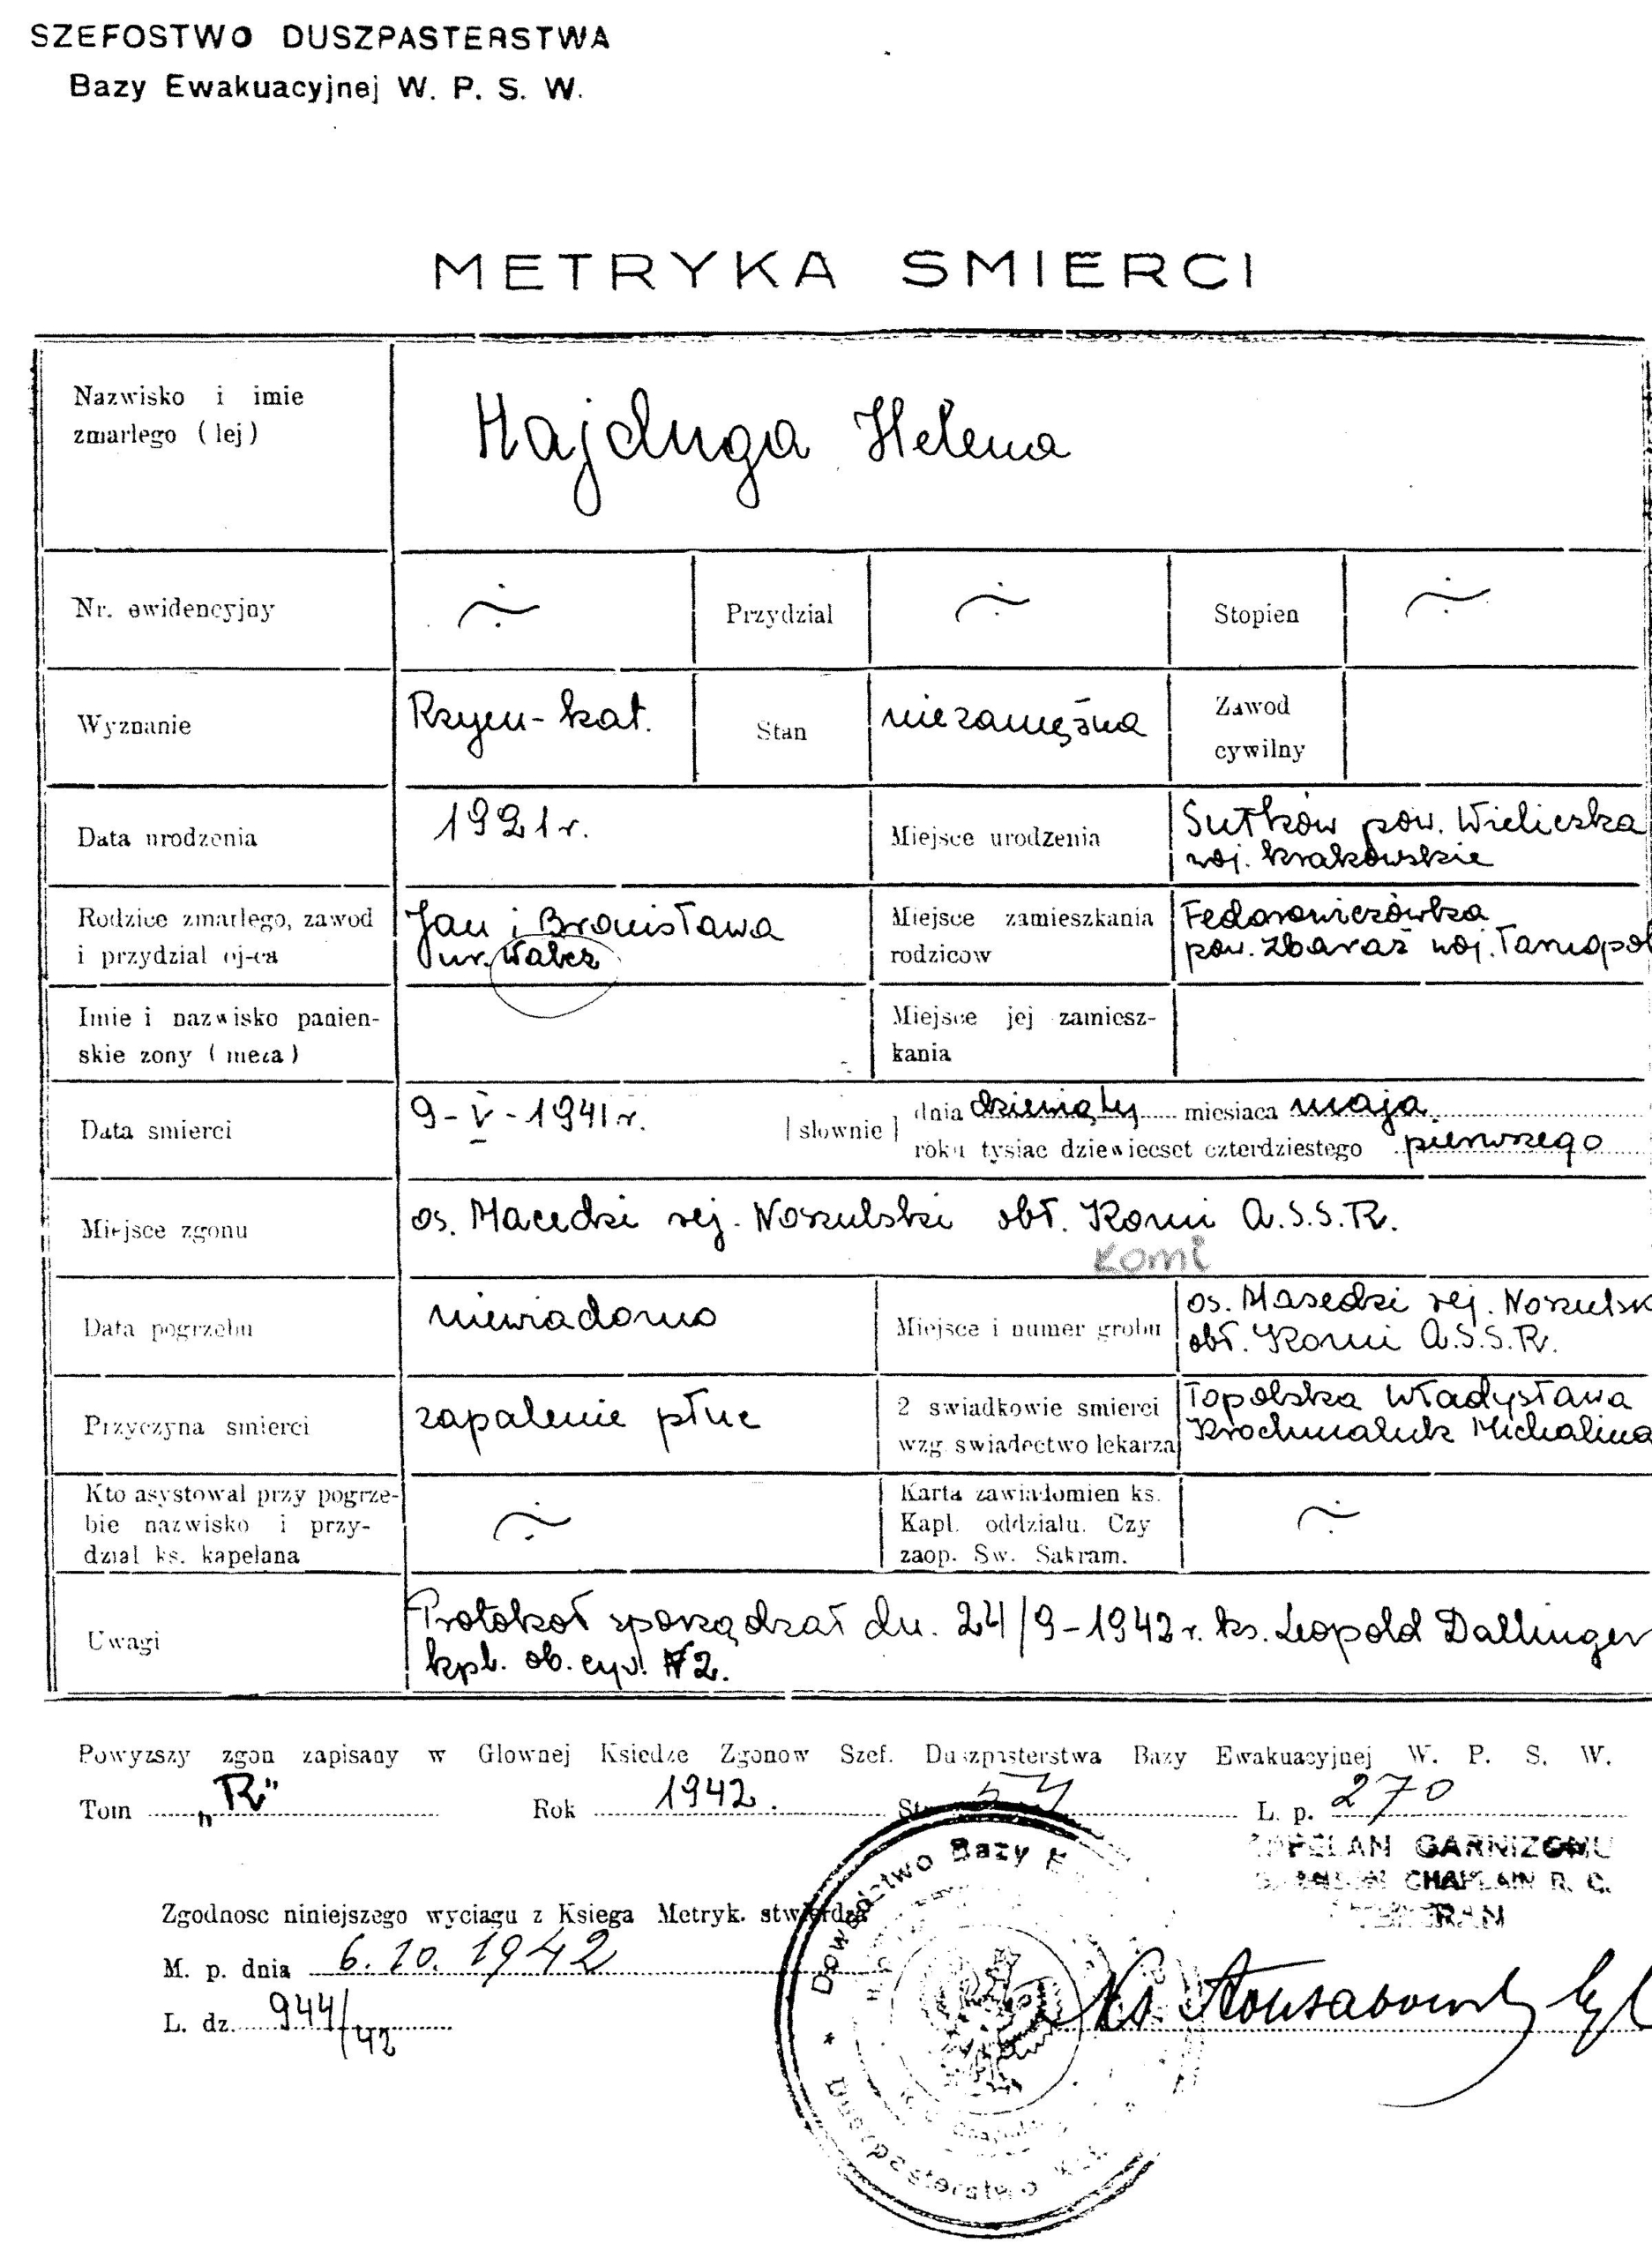 SZEFOSTWO DUSZPASTERSTWA
Bazy Ewakuacyjnej W. P. S. W.
METRYKA SMIERCI
Nazwisko i imie
zmarlego ( lej )
Hajduga Helena
Nr. ewidencyjny
Przydzial
Stopien
Wyznanie
Rzym-kat.
Stan
niezamężna
Zawod
cywilny
Data urodzenia
1921 r.
Miejsce urodzenia
Sułków pow. Wieliczka
woj. krakowskie
Rodzice zmarlego, zawod
i przydzial oj-ca
Jan i Bronisława
ur. Walcz
Miejsce zamieszkania
rodzicow
Fedorowiczówka
pow. Zbaraż woj. Tarnopol
Imie i nazwisko panien-
skie zony ( meza )
Miejsce jej zamiesz-
kania
Data smierci
9 - V - 1941 r.
[ slownie ]
dnia dziewiąty miesiaca maja
roku tysiac dziewiecset czterdziestego pierwszego
Miejsce zgonu
os. Macedzi rej. Noszulski obł. Komi A.S.S.R.
Komi
Data pogrzebu
niewiadomo
Miejsce i numer grobu
os. Masedzi rej. Noszulsk
obł. Komi A.S.S.R.
Przyczyna smierci
zapalenie płuc
2 swiadkowie smierci
wzg. swiadectwo lekarza
Topolska Władysława
Krochmaluk Michalina
Kto asystowal przy pogrze-
bie nazwisko i przy-
dzial ks. kapelana
Karta zawiadomien ks.
Kapl. oddzialu. Czy
zaop. Sw. Sakram.
Uwagi
Protokoł sporządzał dn. 24/9-1942 r. ks. Leopold Dallinger
kpl. ob. cyw. № 2.
Powyzszy zgon zapisany w Glownej Ksiedze Zgonow Szef. Duszpasterstwa Bazy Ewakuacyjnej W. P. S. W.
Tom „R" Rok 1942. L. p. 270
KAPELAN GARNIZONU
CHAPLAIN R. C.
TEHERAN
Zgodnosc niniejszego wyciagu z Ksiega Metryk. stwierdza
M. p. dnia 6. 10. 1942
L. dz. 944/42
Dowodztwo Bazy
Duszpasterstwo
Ks.